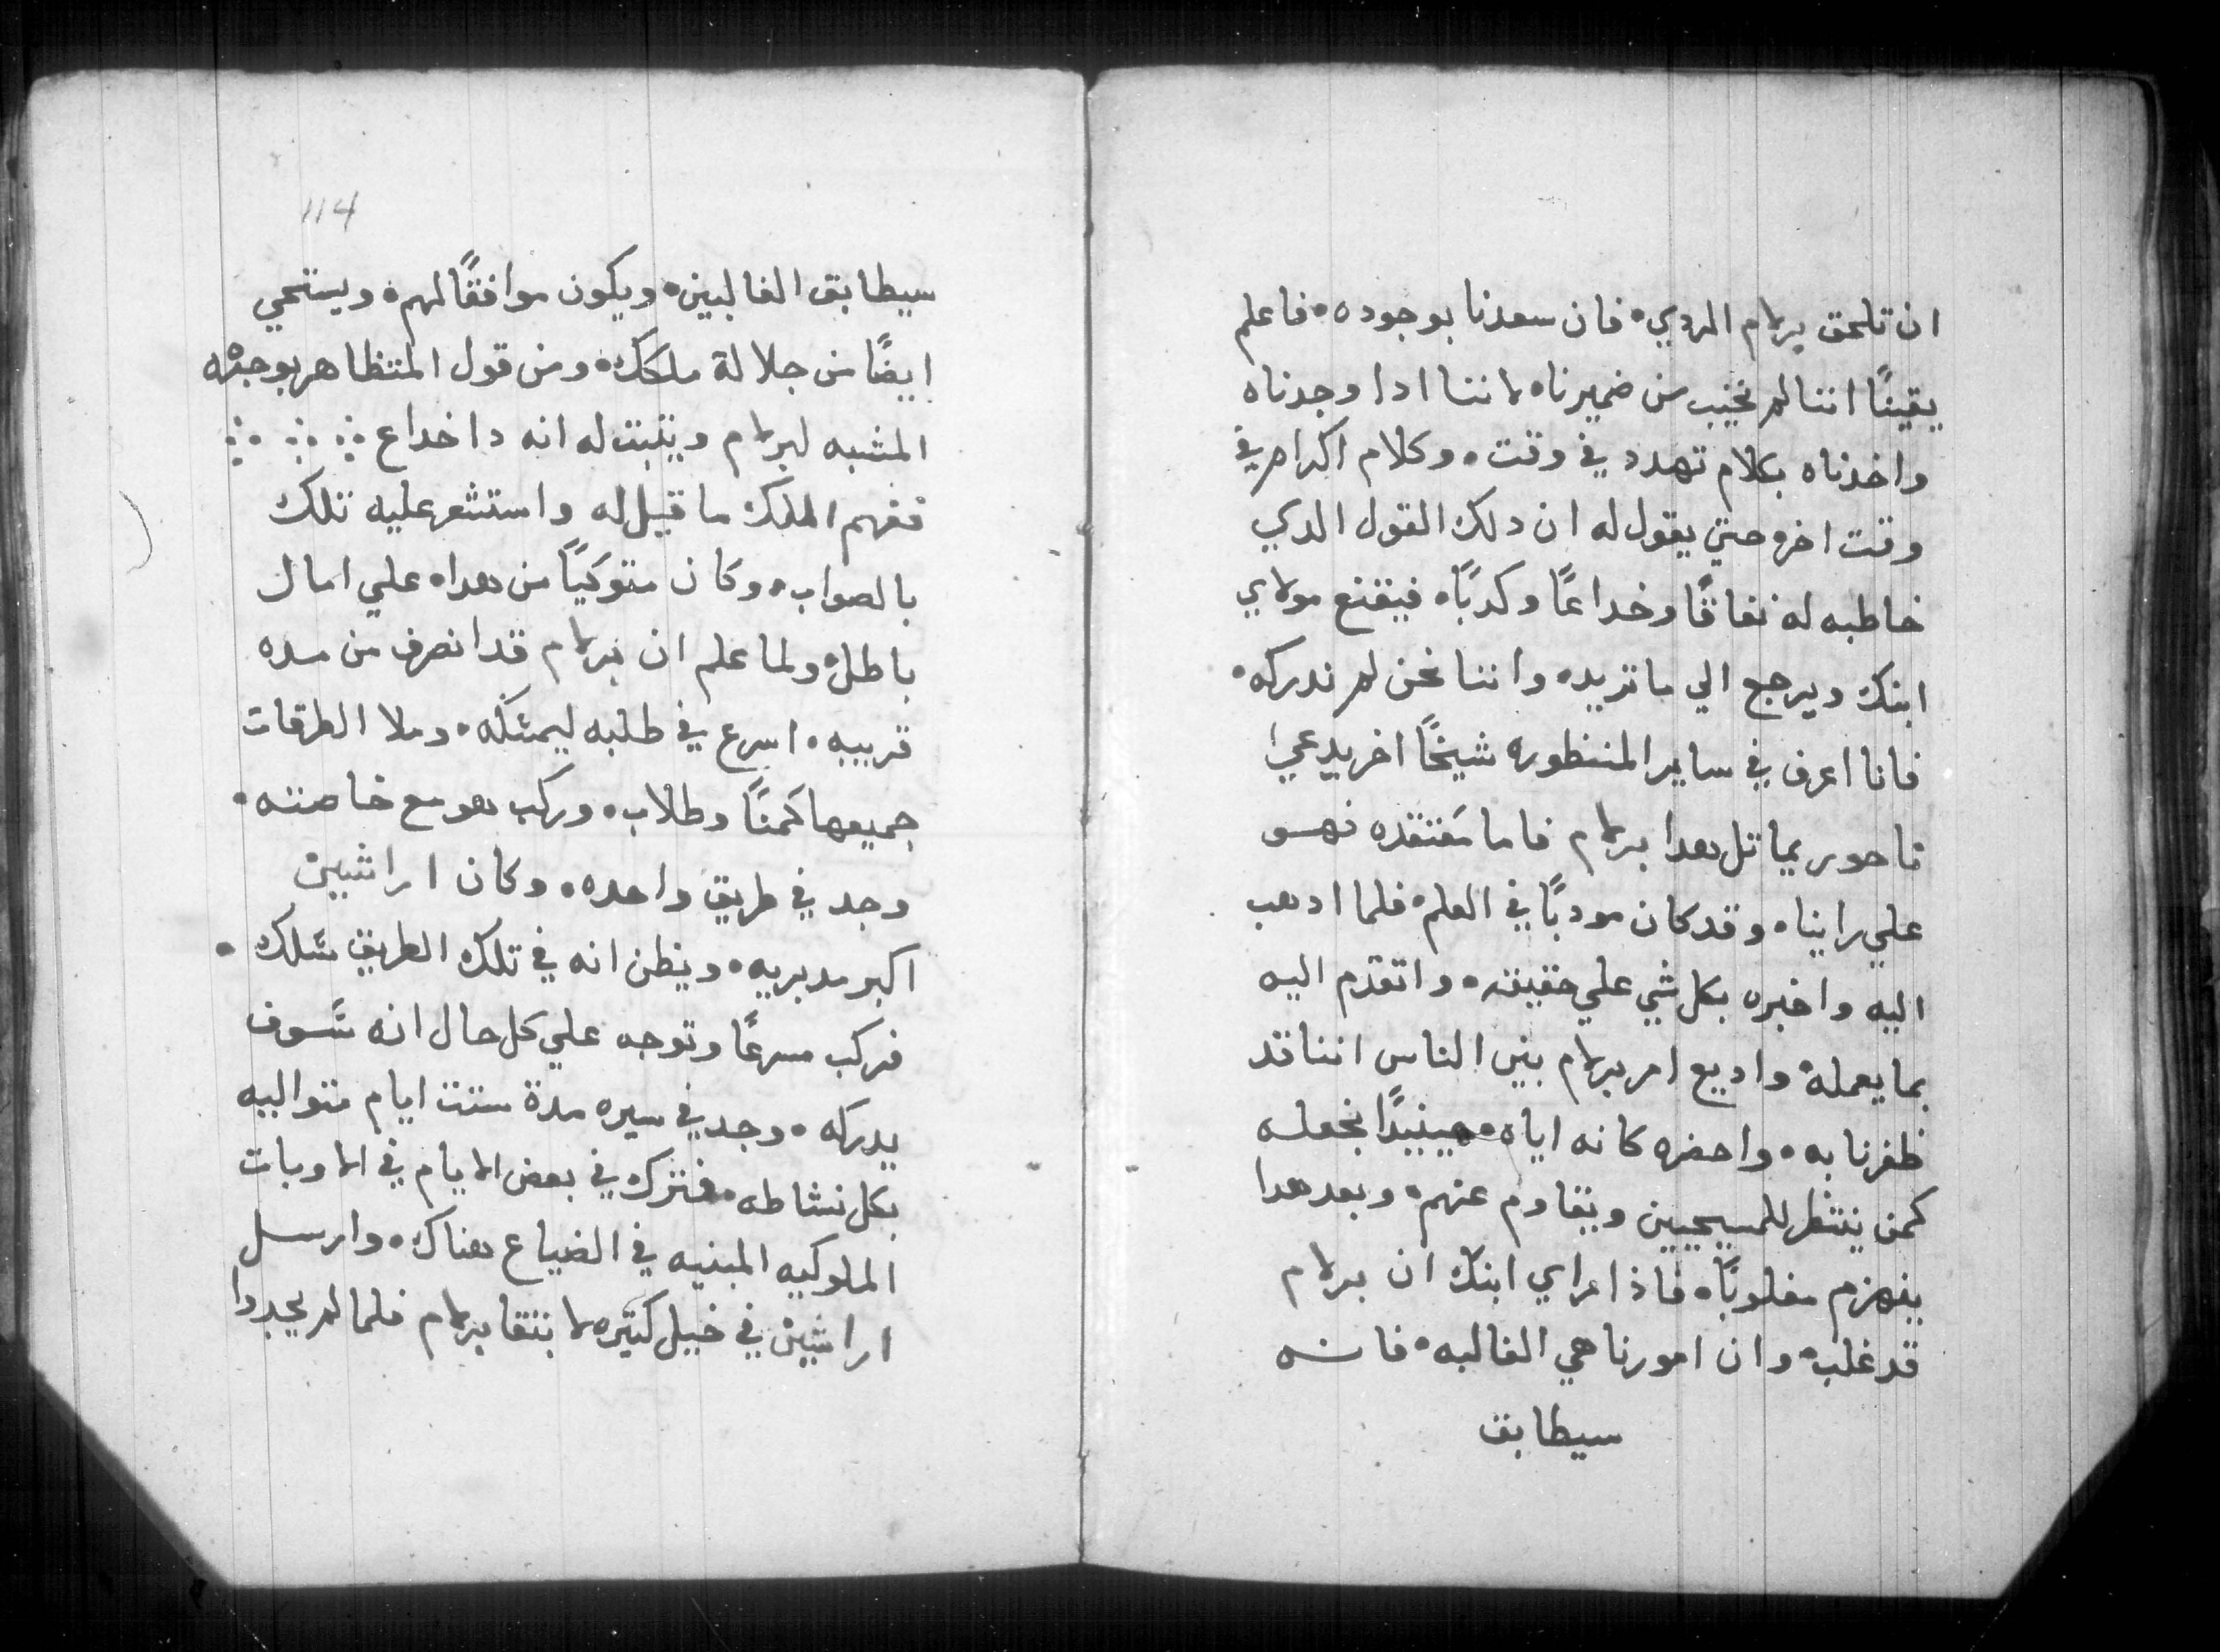 ان تلحق برلام الردي، فان سعدنا بوجوده، فاعلم
يقينًا اننا لم نخيب من ضميرنا، لاننا ادا وجدناه
واخدناه بكلام تهدد في وقت، وكلام اكرام في
وقت اخر، حتي يقول له ان دلك القول الدي
خاطبه له نفاقًا وخداعًا وكدبًا، فيقنع مولاي
ابنك ويرجع الي ما تريد، واننا نحن لم ندركه،
فانا اعرف في ساير المنظوره شيخًا اخر يدعي
ناحور يماتل هدا برلام فاما معتقده فهو
علي راينا، وقد كان مودبًا في العلم، فلما ادهب
اليه واخبره بكل شي علي حقيقته، واتقدم اليه
بما يعمله، واديع امر برلام بين الناس اننا قد
ظفرنا به، واحضره كانه اياه، حينيدًا نجعله
كمن ينتظر للمسيحيين ويقاوم عنهم، وبعد هدا
ينهزم مغلوبًا، فاذا راي ابنك ان برلام
قد غلب، وان امورنا هي الغالبه، فانه
سيطابق
114
سيطابق الغالبين، ويكون موافقًا لهم، ويستحي
ايضًا من جلالة ملكك، ومن قول المتظاهر بوجهه
المشبه لبرلام ويتبت له انه دا خداع
ففهم الملك ما قيل له واستشعر عليه تلك
بالصواب، وكان متوكيًا من هدا، علي امال
باطل، ولما علم ان برلام قد انصرف من مده
قريبه، اسرع في طلبه ليمسكه، وملا الطرقات
جميعها كمنًا وطلاب، وركب هو مع خاصته،
وجد في طريق واحده، وكان اراشيين
اكبر مدبريه، ويظن انه في تلك الطريق سلك،
فركب مسرعًا وتوجه علي كل حال انه سوف
يدركه، وجد في سيره مدة ستت ايام متواليه
بكل نشاطه، فترك في بعض الايام في الاوبات
الملوكيه المبنيه في الضياع هناك، وارسل
اراشيين في خيل كتيره لابتقا برلام فلما لم يجدوا